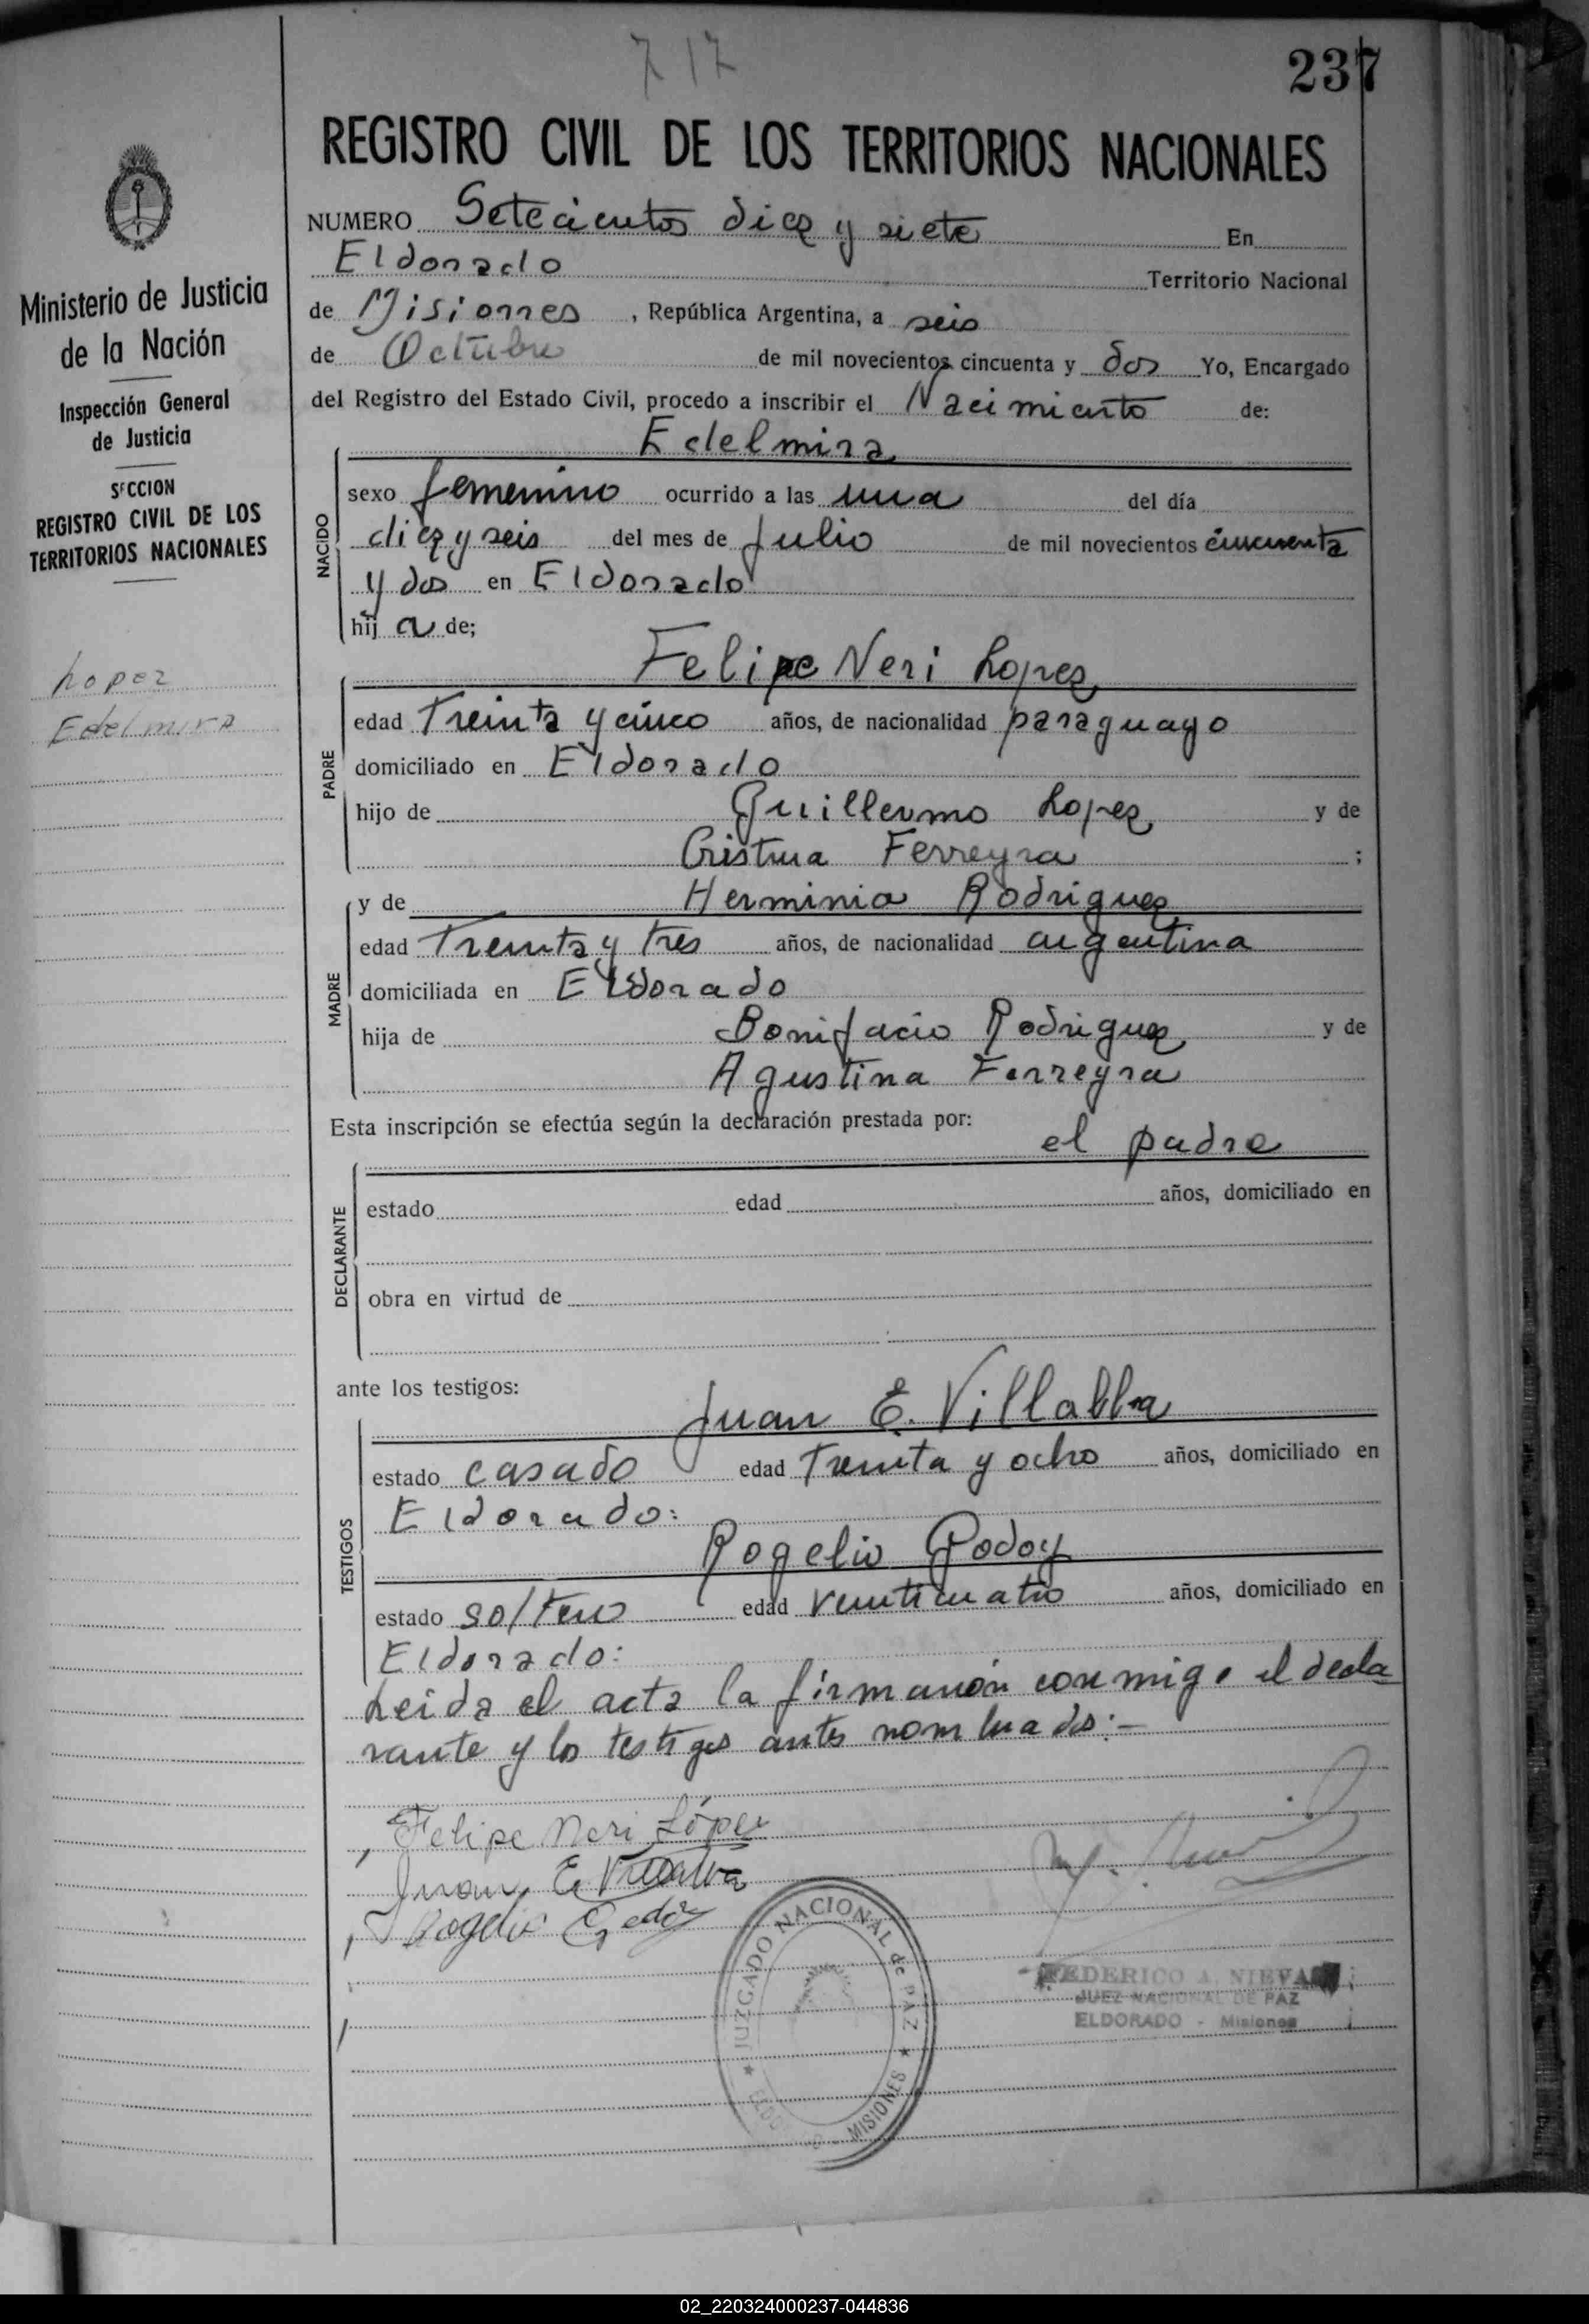 717
237
REGISTRO CIVIL DE LOS TERRITORIOS NACIONALES
Ministerio de Justicia
de la Nación
Inspección General
de Justicia
SECCION
REGISTRO CIVIL DE LOS
TERRITORIOS NACIONALES
Lopez
Edelmira
NUMERO Setecientos diez y siete En
Eldorado Territorio Nacional
de Misiones, República Argentina, a seis
de Octubre de mil novecientos cincuenta y dos Yo, Encargado
del Registro del Estado Civil, procedo a inscribir el Nacimiento de:
Edelmira
NACIDO
sexo femenino ocurrido a las una del día
diez y seis del mes de Julio de mil novecientos cincuenta
y dos en Eldorado
hij a de;
Felipe Neri Lopez
PADRE
edad Treinta y cinco años, de nacionalidad paraguayo
domiciliado en Eldorado
hijo de Guillermo Lopez y de
Cristina Ferreyra ;
y de Herminia Rodriguez
MADRE
edad Treinta y tres años, de nacionalidad argentina
domiciliada en Eldorado
hija de Bonifacio Rodriguez y de
Agustina Ferreyra
Esta inscripción se efectúa según la declaración prestada por:
el padre
DECLARANTE
estado edad años, domiciliado en
obra en virtud de
ante los testigos:
Juan E. Villalba
TESTIGOS
estado casado edad Treinta y ocho años, domiciliado en
Eldorado:
Rogelio Godoy
estado soltero edad veinticuatro años, domiciliado en
Eldorado:
Leida el acta la firmaron conmigo el decla
rante y los testigos antes nombrados:-
Felipe Neri López
Juan E Villalva
Rogelio Godoy
JUZGADO NACIONAL de PAZ
MISIONES
FEDERICO A. NIEVA
JUEZ NACIONAL DE PAZ
ELDORADO - Misiones
02_220324000237-044836